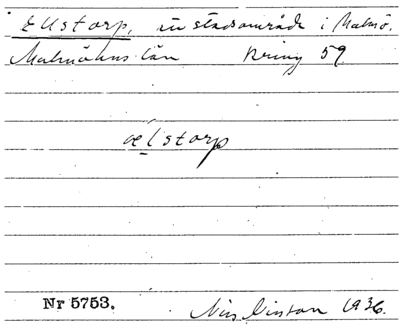 Ellstorp, in stadsområde i Malmö.
Malmöhus län Kring 59
ælstorp
Nr 5753. Nils 1936.